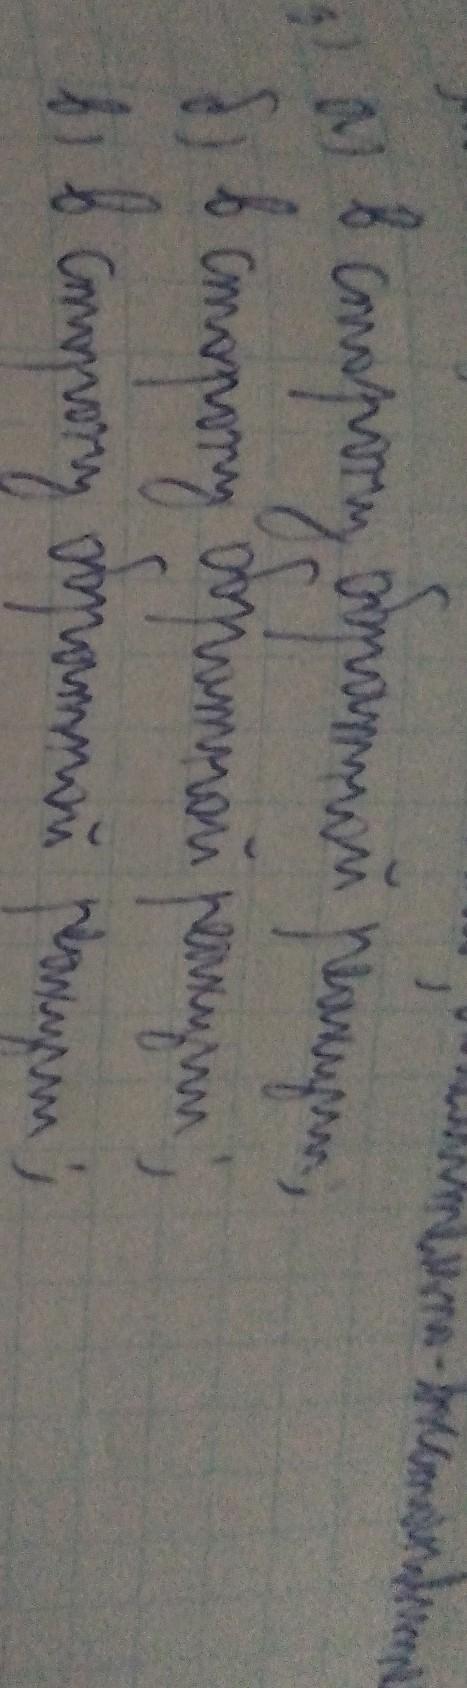 а) в сторону обратной реакции,
б) в сторону обратной реакции;
в) в сторону обратной реакции;